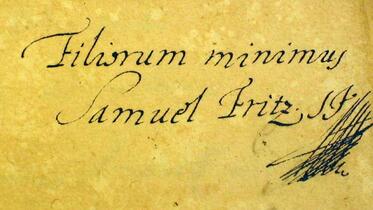 Filiorum minimus
Samuel Fritz SJ